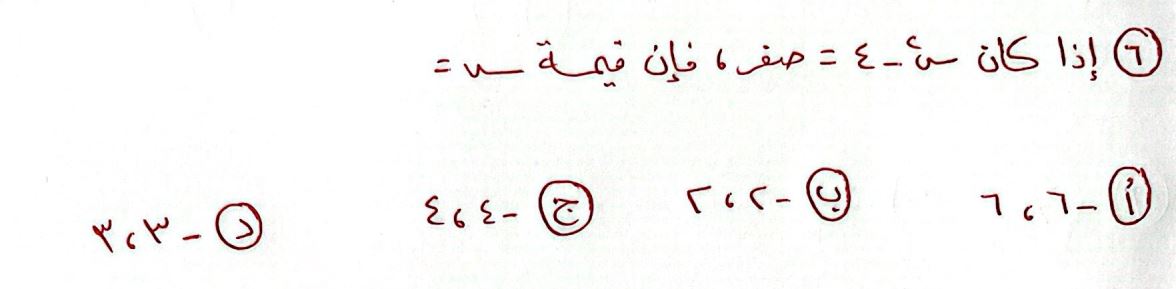 ٦ إذا كان س٢ - ٤ = صفر ، فإن قيمة س =
أ -٦ ، ٦ ب -٢ ، ٢ ج -٤ ، ٤ د -٣ ، ٣